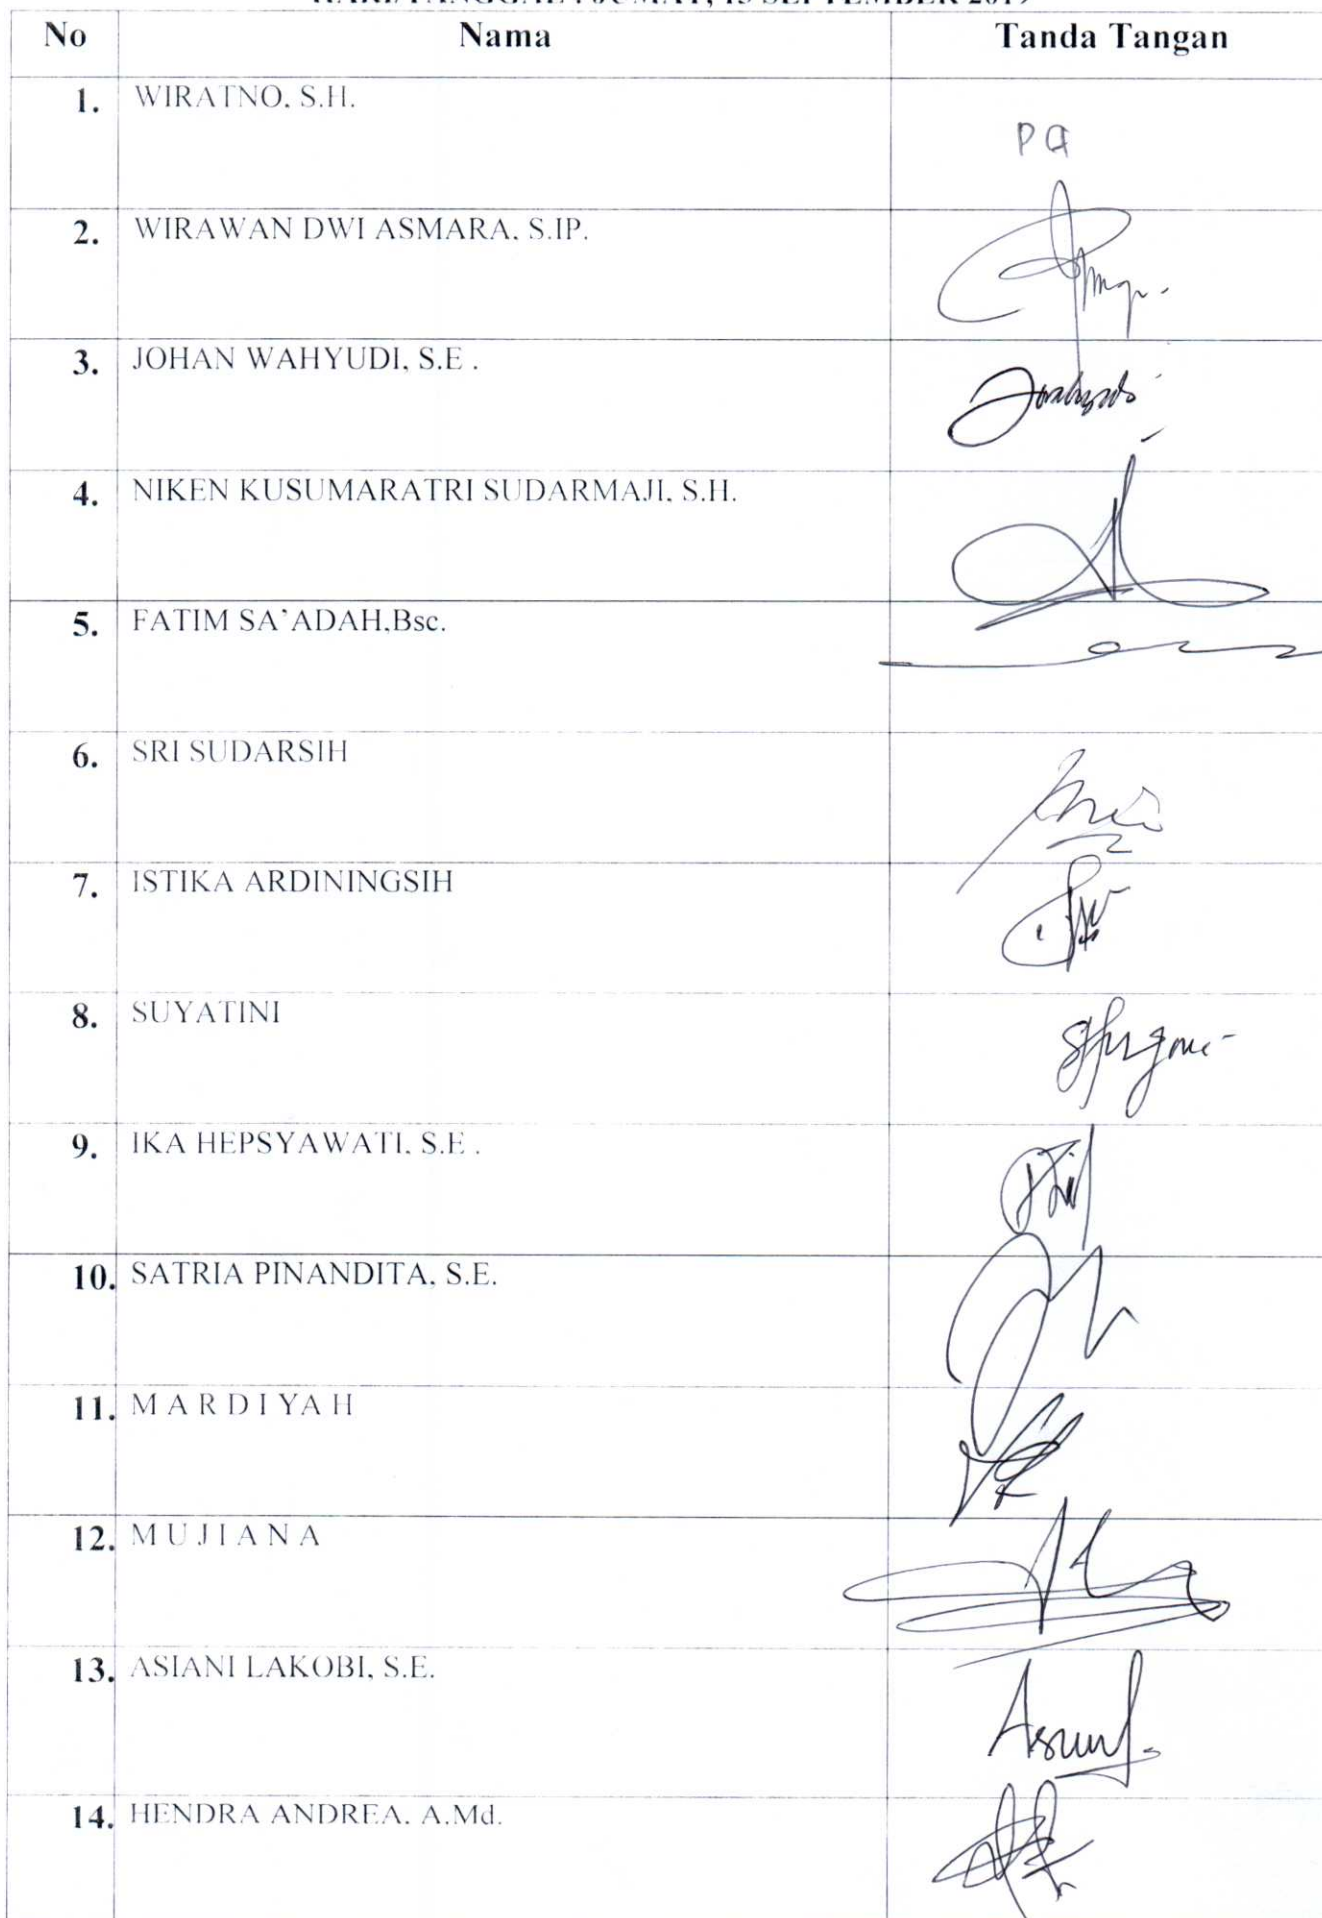 HARI/TANGGAL : JUMAT, 13 SEPTEMBER 2019
No Nama Tanda Tangan
1. WIRATNO, S.H.
2. WIRAWAN DWI ASMARA, S.IP.
3. JOHAN WAHYUDI, S.E .
4. NIKEN KUSUMARATRI SUDARMAJI, S.H.
5. FATIM SA'ADAH,Bsc.
6. SRI SUDARSIH
7. ISTIKA ARDININGSIH
8. SUYATINI
9. IKA HEPSYAWATI, S.E .
10. SATRIA PINANDITA, S.E.
11. M A R D I YA H
12. M U J I A N A
13. ASIANI LAKOBI, S.E.
14. HENDRA ANDREA, A.Md.